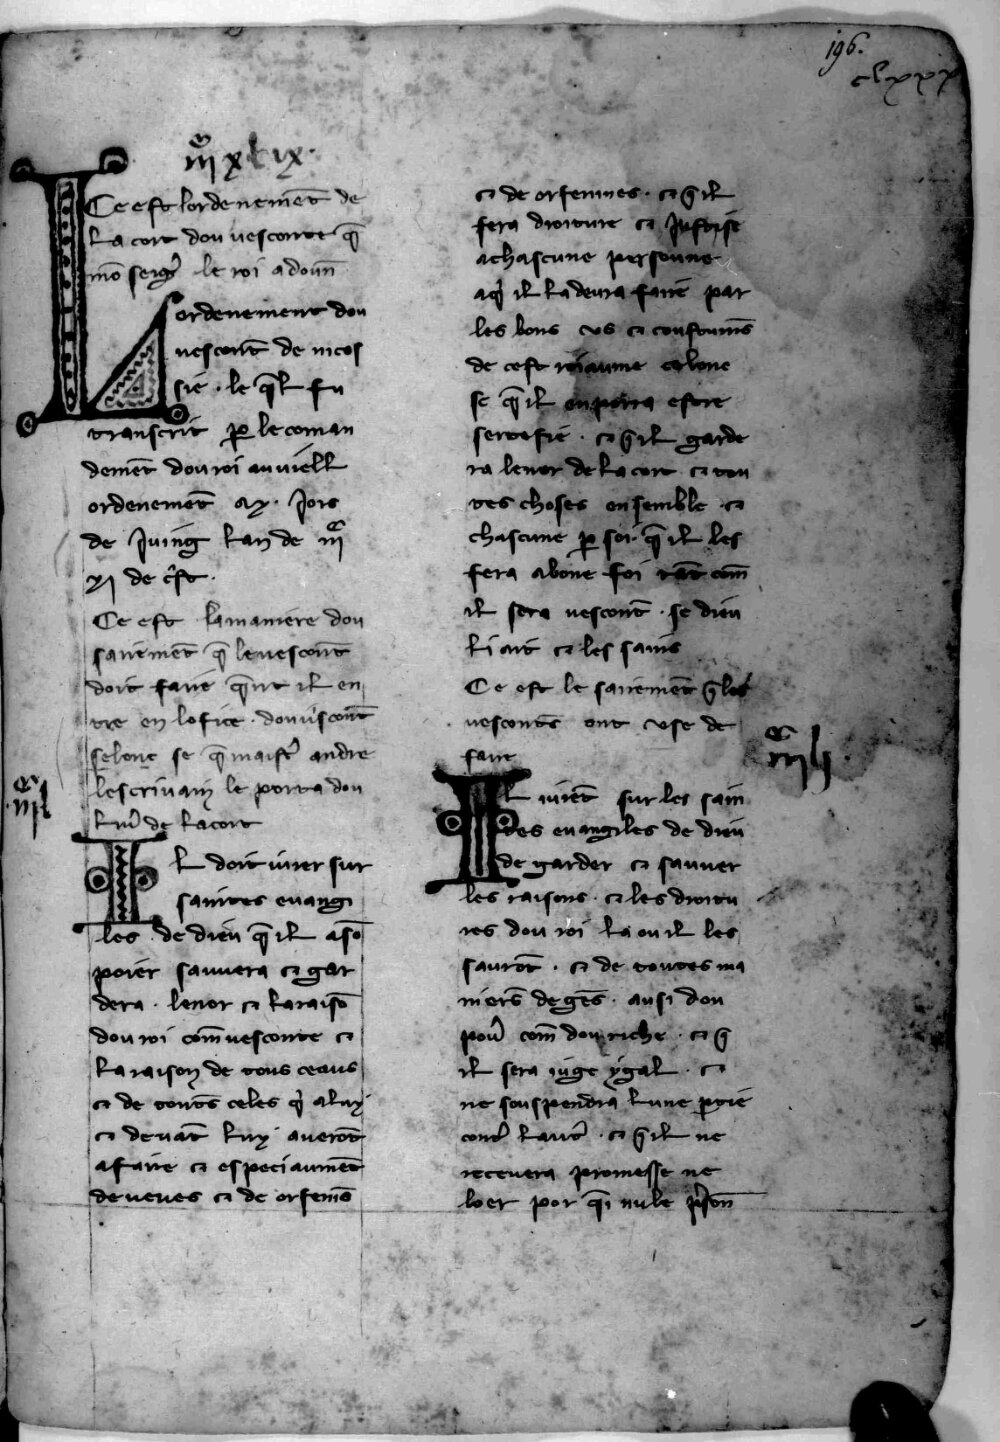 196.
clxxx
iiij xlix.
Ce est lordenemēt de
La cort dou vesconte q̄
mō seigr̄ le roi a dōun
Lordenement dou
vescont̄ de nicos
sie · le q̄l fu
transcrit p̱ le coman
demēt dou roi au viell
ordenemēt a x · Jors
de Juing lan de
xi de cr̄st ·
Ce est la maniere dou
sairemēt q̄ le vescont̄
doit faire q̄nt il en
tre en lofice · dou viscont̄
selonc se q̄ maistr̄ andre
lescrivain le porta dou
liur̄ de la cort
iiij l
Il doit iurer sur
saintes euangi
les de dieu q̄ il a sō
poier sauuera ⁊ gar
dera · lenor ⁊ la raisō
dou roi com̄ vesconte ⁊
la raison de tous ceaus
⁊ de tout̄s celes q̄ a luy
⁊ deuāt luy auerōt
a faire ⁊ especiaumēt
de veues ⁊ de orfenīs
⁊ de orfenines · ⁊ q̄ il
fera droiture ⁊ Justise
a chascune persoune
a q̄ il la deura faire par
les bons vs ⁊ coustum̄s
de cest roiaume selone
se q̄ il en porra estre
sertefie · ⁊ q̄ il garde
ra lenor de la cort ⁊ tou
tes choses ensemble ⁊
chascune p̱ soi · q̄ il les
fera a bone foi tāt com̄
il sera vescont̄ · se dieu
li ait ⁊ les sains
Ce est le sairemēt q̄ les
vescont̄s ont vse de
faire
iiij lj
Il iuiēt sur les sain
tes euangiles de dieu
de garder ⁊ sauuer
les raisons · ⁊ les droitu
res dou roi la ou il les
saurōt · ⁊ de toutes ma
nier̄s de gēs · ausi dou
pour̄ com̄ dou riche · ⁊ q̄
il sera iuge ygal · ⁊
ne souspendra lune p̱tie
contr̄ lautr̄ · ⁊ q̄ il ne
receuera promesse ne
loer por q̄i nule p̱sōn